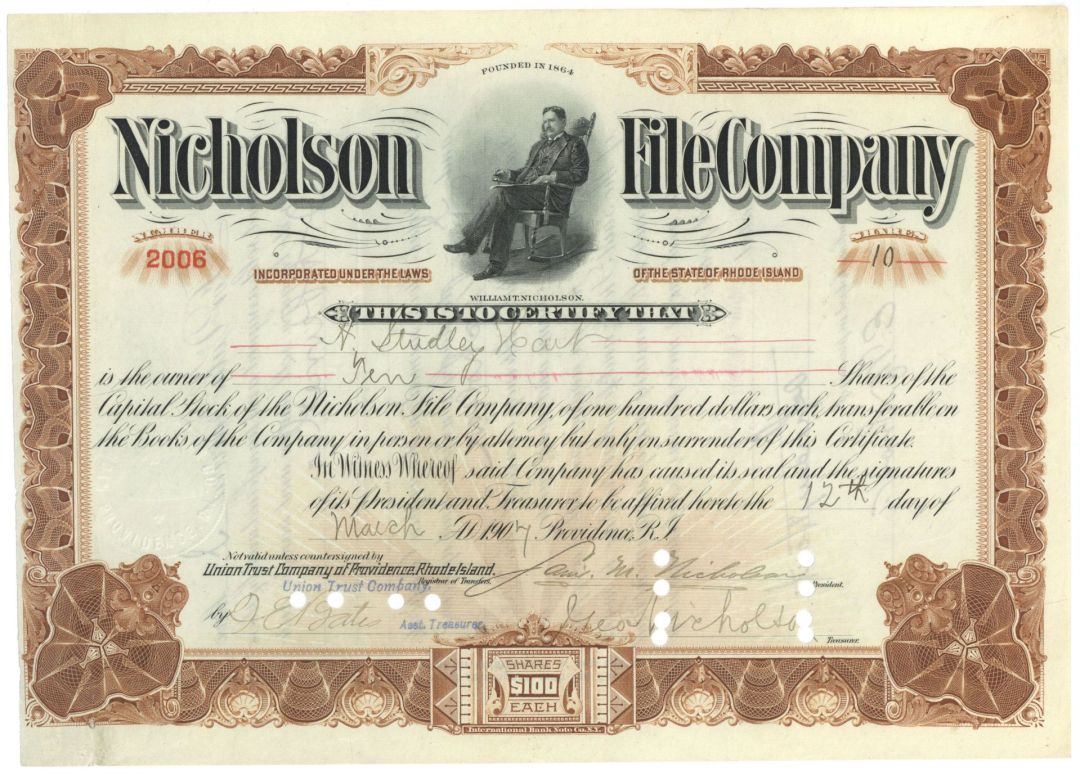 FOUNDED IN 1864
Nicholson File Company
NUMBER
2006
SHARES
10
INCORPORATED UNDER THE LAWS OF THE STATE OF RHODE ISLAND
WILLIAM T. NICHOLSON.
THIS IS TO CERTIFY THAT
N. Studley Hart
is the owner of Ten Shares of the
Capital Stock of the Nicholson File Company, of one hundred dollars each, transferable on
the Books of the Company in person or by attorney but only on surrender of this Certificate.
In Witness Whereof said Company has caused its seal and the signatures
of its President and Treasurer to be affixed hereto the 12th day of
March AD 1907 Providence, R.I.
Not valid unless countersigned by
Union Trust Company of Providence, Rhode Island.
Registrar of Transfers.
Union Trust Company,
Saml. M. Nicholson
President.
by
Asst. Treasurer
Geo Nicholson
Treasurer.
SHARES
$100
EACH
International Bank Note Co. N.Y.